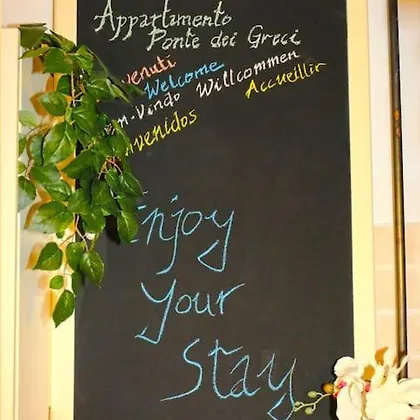 Appartamento
Ponte dei Greci
venuti
Welcome
m-Vindo Willcommen
nvenidos Accueillir
Enjoy
Your
Stay